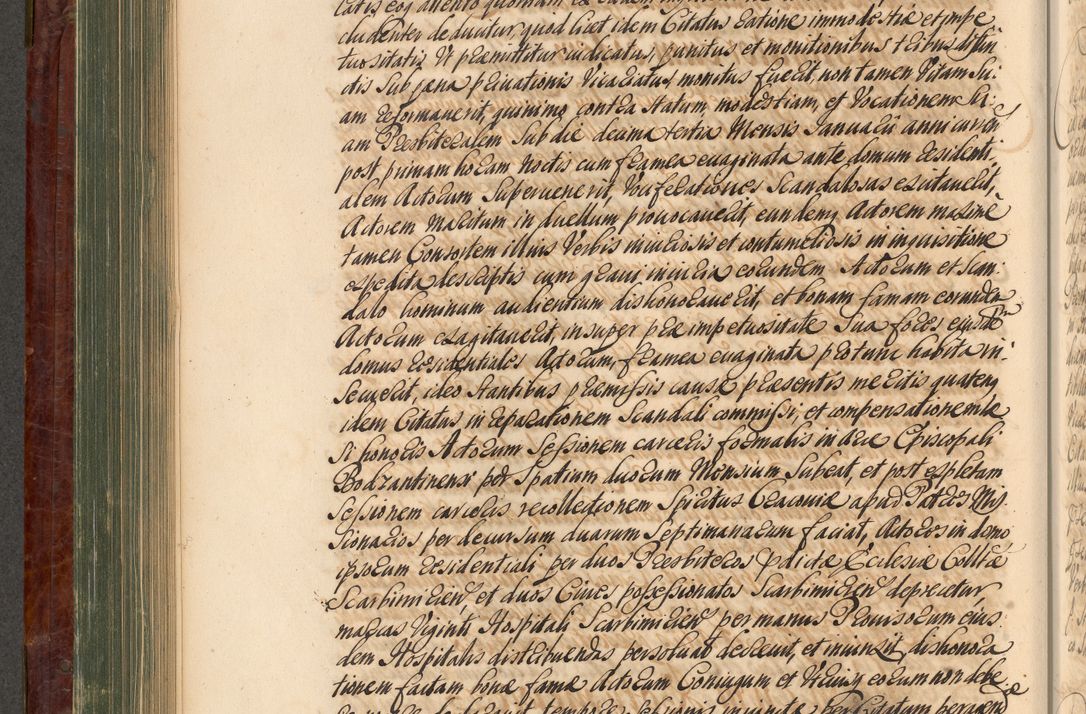 cludenter deducitur, quod licet idem Citatus ratione immodestiæ et impe
tuositatis Ut præmittitur iudicatus, punitus et monitionibus tribus distin
ctis sub pæna privationis Vicariatus, monitus fuerit, non tamen Vitam su
am reformaverit, quinimo contra statum, modestiam, et Vocationem su
am Præsbiteralem sub die decima tertia Mensis Januarii anni curren
post primam horam Noctis cum framea evaginata ante domum residenti
alem Actorum supervenerit, Vociferationes scandalosas excitaverit,
Actorem Maritum in duellum provocaverit, eundemq Actorem maxime
tamen Consortem illius Verbis iniuriosis et contumeliosis in inquisitione
expedita descriptis cum gravi iniuria eorundem Actorum et scan
dalo hominum audientium dishonoraverit, et bonam famam eorundem
Actorum exagitaverit, insuper præ impetuositate sua fores eiusdem
domus residentiales Actorum, framea evaginata protunc habita in
secuerit, ideo stantibus præmissis causæ præsentis meritis quatenq
idem Citatus, in reparationem scandali commissi, et compensationem læ
si honoris Actorum sessionem carceris formalis in arce Episcopali
Bodzantinensi per spatium duorum Mensium subeat, et post expletam
sessionem carceris recollectionem spiritus Cracoviæ apud Patres Mis
sionarios per decursum duarum septimanarum faciat, Actores in domo
ipsorum residentiali per duos Præsbiteros prædictæ Ecclesiæ Colltæ
Scarbimirien et duos Cives possessionatos Scarbimirien deprecetur
marcas Viginti Hospitali Scarbimirien per manus Provisorum eius
dem Hospitalis distribuendas persoluat decreuit, et iniunxit, dishonora
tionem factam bonæ famæ Actorum Coniugum et Vtriusq eorum non debe